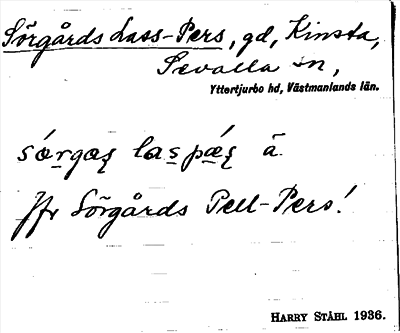 Sörgårds Lass-Pers, gd, Kinsta,
Sevalla sn,
Yttertjurbo hd, Västmanlands län.
ä.
Jfr Sörgårds Pell-Pers!
HARRY STÅHL 1936.